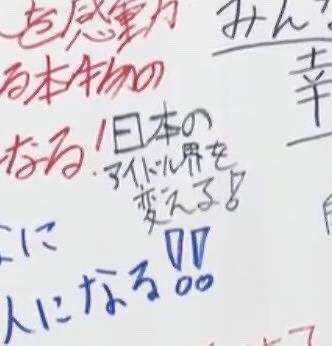 を感動
る本物の
なる!
日本の
アイドル界を
変える!
なに
人になる!!
みん
幸